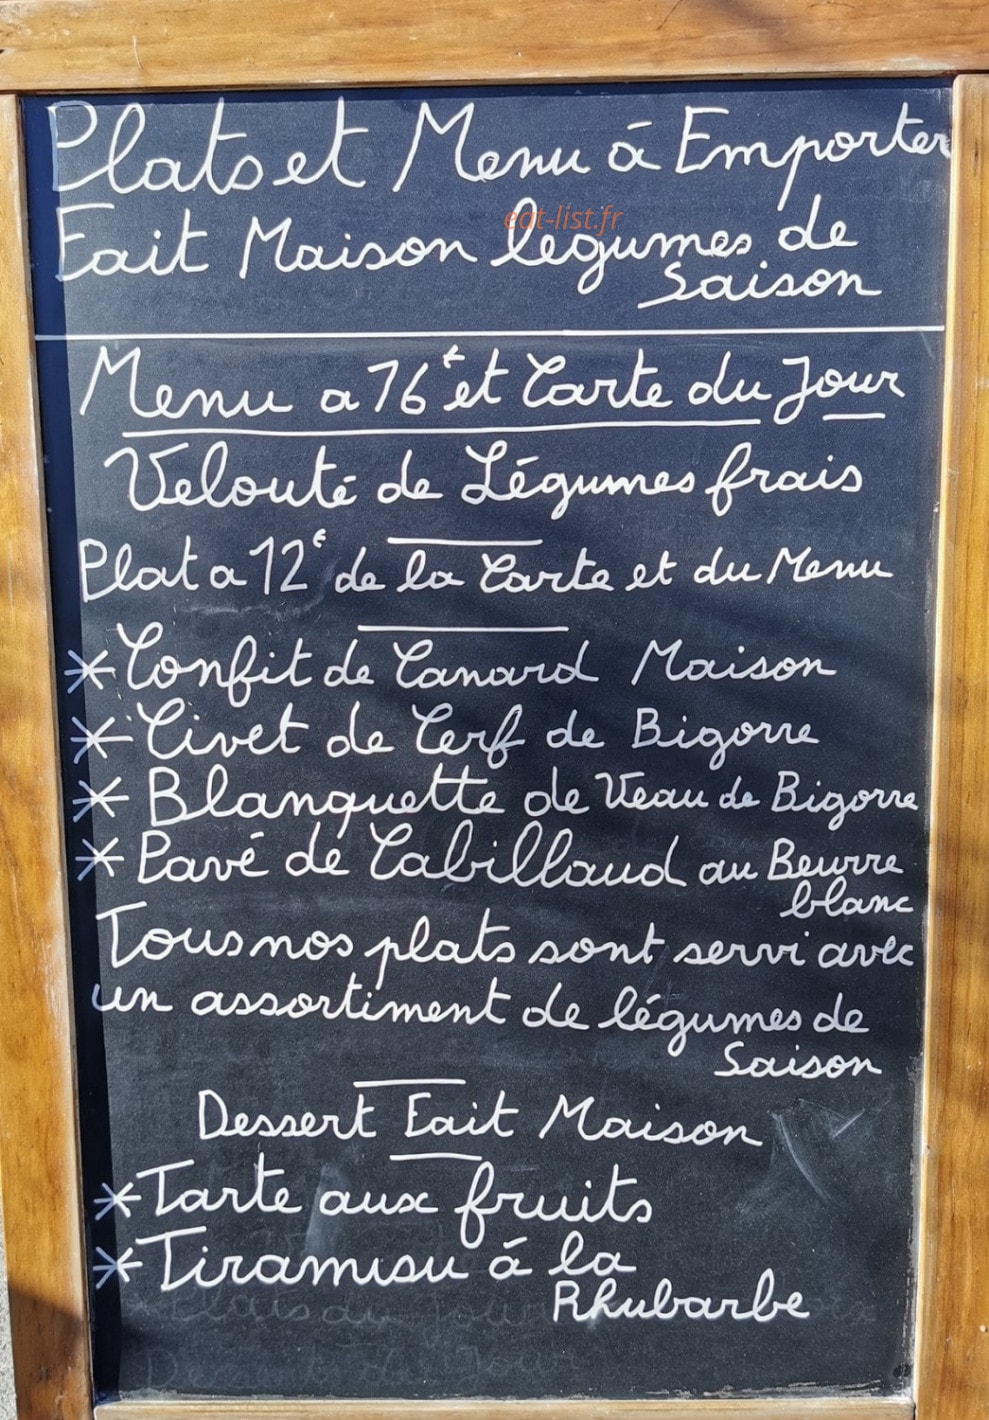 Plats et Menu à Emporter
eat-list.fr
Fait Maison légumes de
Saison
Menu a 16€ et Carte du Jour
Velouté de Légumes frais
Plat a 12€ de la Carte et du Menu
* Confit de Canard Maison
* Civet de Cerf de Bigorre
* Blanquette de Veau de Bigorre
* Pavé de Cabillaud au Beurre
blanc
Tous nos plats sont servi avec
un assortiment de légumes de
Saison
Dessert Fait Maison
* Tarte aux fruits
* Tiramisu á la
Rhubarbe
Plats du Jour
Dessert du Jour